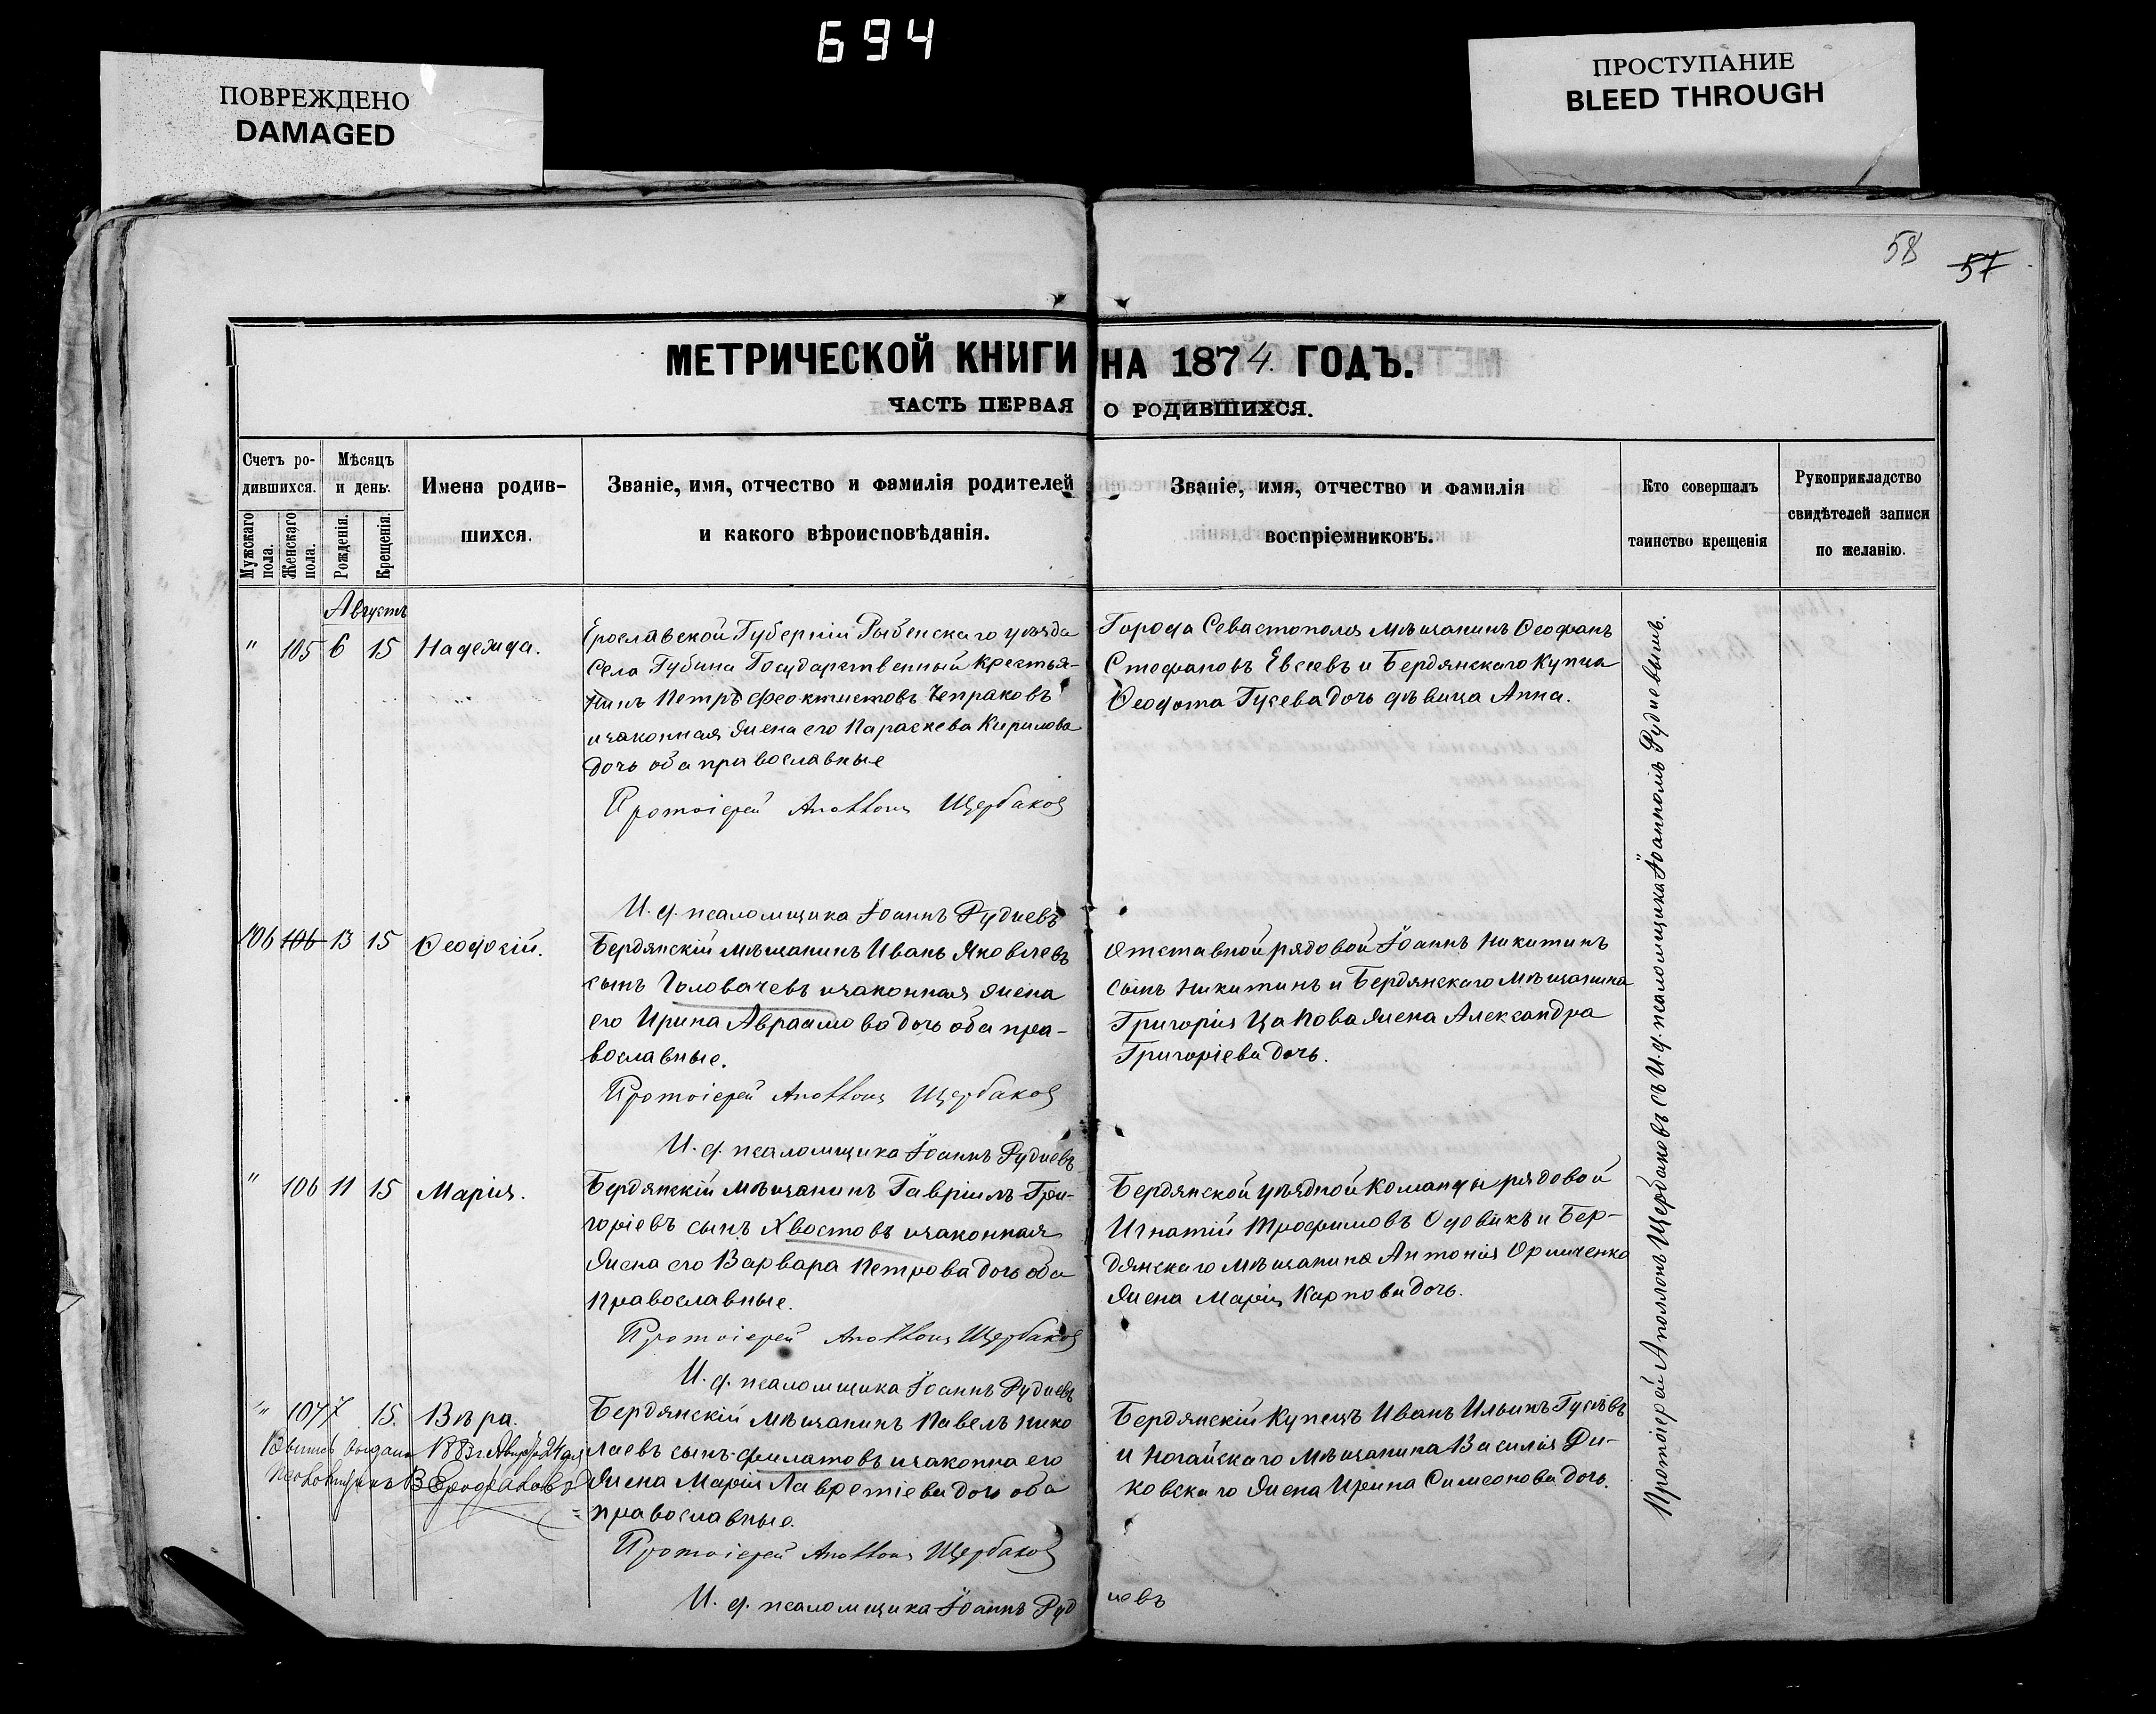 694
ПОВРЕЖДЕНО
DAMAGED
ПРОСТУПАНИЕ
BLEED THROUGH
58 57
МЕТРИЧЕСКОЙ КНИГИ НА 1874 ГОДЪ.
ЧАСТЬ ПЕРВАЯ О РОДИВШИХСЯ.
Счетъ ро-
дившихся.
Мужскаго
пола.
Женскаго
пола.
Мѣсяцъ
и день.
Рожденія.
Крещенія.
Имена родив-
шихся.
Званіе, имя, отчество и фамилія родителей
и какого вѣроисповѣданія.
Званіе, имя, отчество и фамилія
воспріемниковъ.
Кто совершалъ
таинство крещенія
Рукоприкладство
свидѣтелей записи
по желанію.
Августъ
" 105 6 15 Надежда.
Ерославской Губерніи Рыбенскаго уѣзда
Села Губина Государственный крестья-
нинъ Петръ Феоктистовъ Чепраковъ
и законная жена его Параскева Кирилова
дочь оба православные
Протоіерей Аполлонъ Щербаковъ
И. д. псаломщика Іоаннъ Рудневъ
Города Севастополя мѣщанинъ Ѳеофанъ
Стефановъ Евсеевъ и Бердянскаго купца
Ѳеодота Гусева дочь дѣвица Анна.
106 106 13 15 Ѳеодосій.
Бердянскій мѣщанинъ Иванъ Яковлевъ
сынъ Головачевъ и законная жена
его Ирина Авраамова дочь оба пра-
вославные.
Протоіерей Аполлонъ Щербаковъ
И. д. псаломщика Іоаннъ Рудневъ
Отставной рядовой Іоаннъ Никитинъ
сынъ Никитинъ и Бердянскаго мѣщанина
Григорія Цапова жена Александра
Григоріева дочь.
" 106 11 15 Марія.
Бердянскій мѣщанинъ Гавріилъ Гри-
горіевъ сынъ Хвостовъ и законная
жена его Варвара Петрова дочь оба
православные.
Протоіерей Аполлонъ Щербаковъ
И. д. псаломщика Іоаннъ Рудневъ
Бердянской уѣздной команды рядовой
Игнатій Трофимовъ Одовикъ и Бер-
дянскаго мѣщанина Антонія Оришченко
жена Марія Карпова дочь.
" 107 7 15. Вѣра.
выдана
Бердянскій мѣщанинъ Павелъ Нико
лаевъ сынъ Филатовъ и законна его
жена Марія Лаврентіева дочь оба
православные.
Протоіерей Аполлонъ Щербаковъ
И. д. псаломщика Іоаннъ Рудневъ
Бердянскій купецъ Иванъ Ильинъ Гусѣвъ
и Ногайскаго мѣщанина Василія Ди-
ковскаго жена Ирина Симеонова дочь.
Протоіерей Аполлонъ Щербаковъ съ И. д. псаломщика Іоанномъ Рудневымъ.